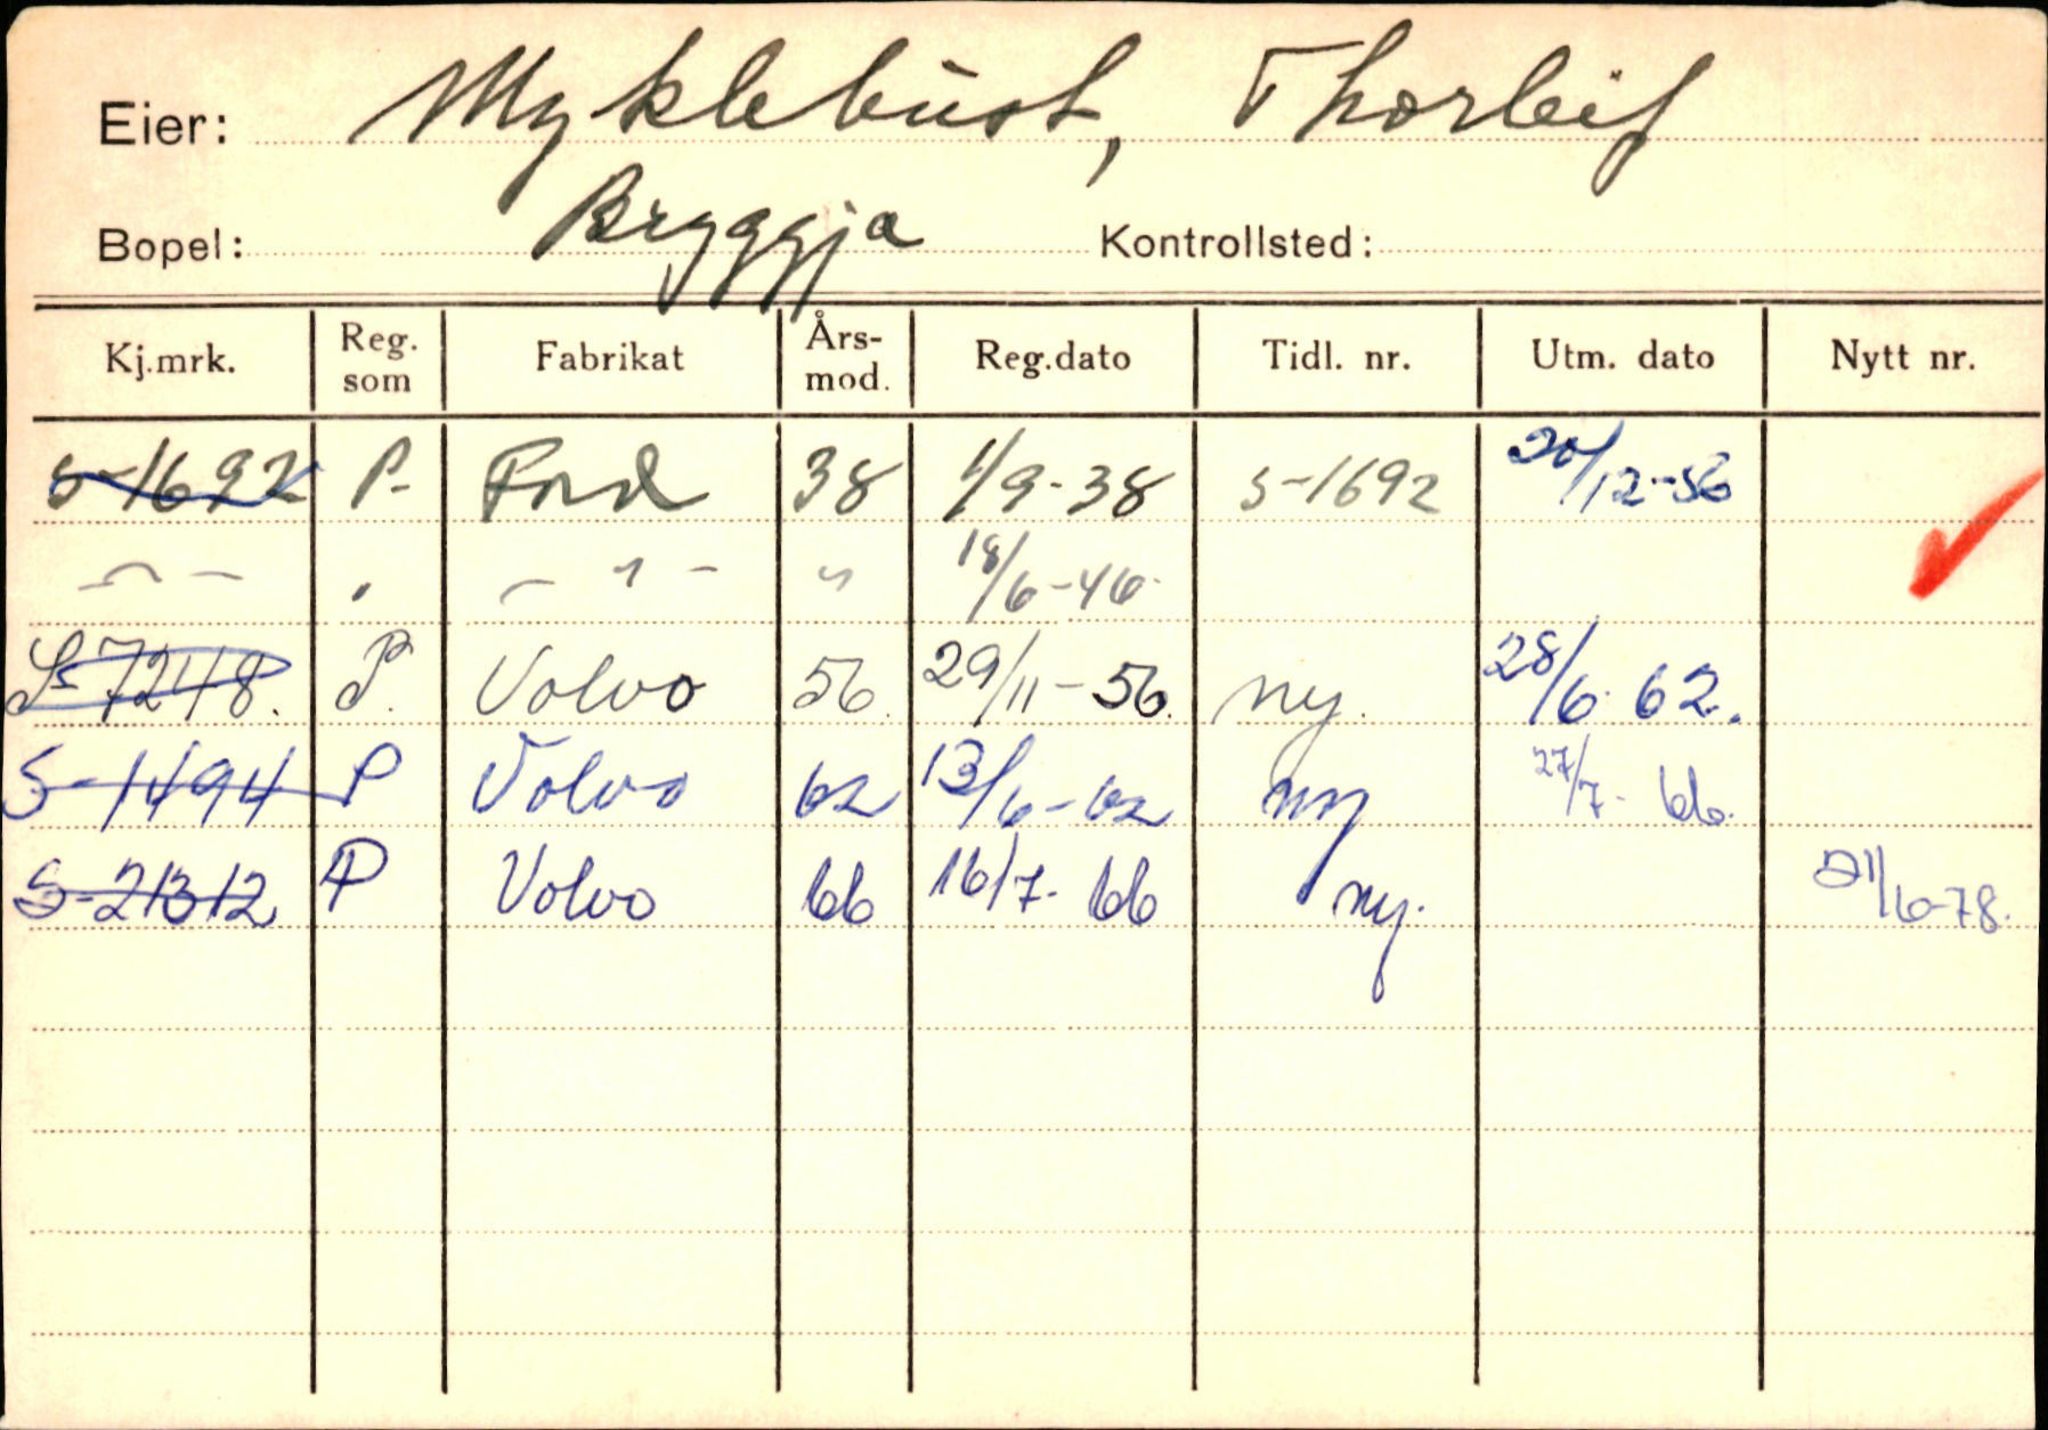 Eier: Myklebust, Thorleif
Bopel: Bryggja Kontrollsted:
Kj.mrk. Reg. som Fabrikat Års-mod. Reg.dato Tidl. nr. Utm. dato Nytt nr.
S-1692 P- Ford 38 1/9-38 S-1692 20/12-56
— " — " — " — " 18/6-46
S-7248. P. Volvo 56. 29/11-56. ny. 28/6 62.
S-1494 P Volvo 62 13/6-62 ny 27/7- 66.
S-21312 P Volvo 66 16/7- 66 ny. 21/6-78.